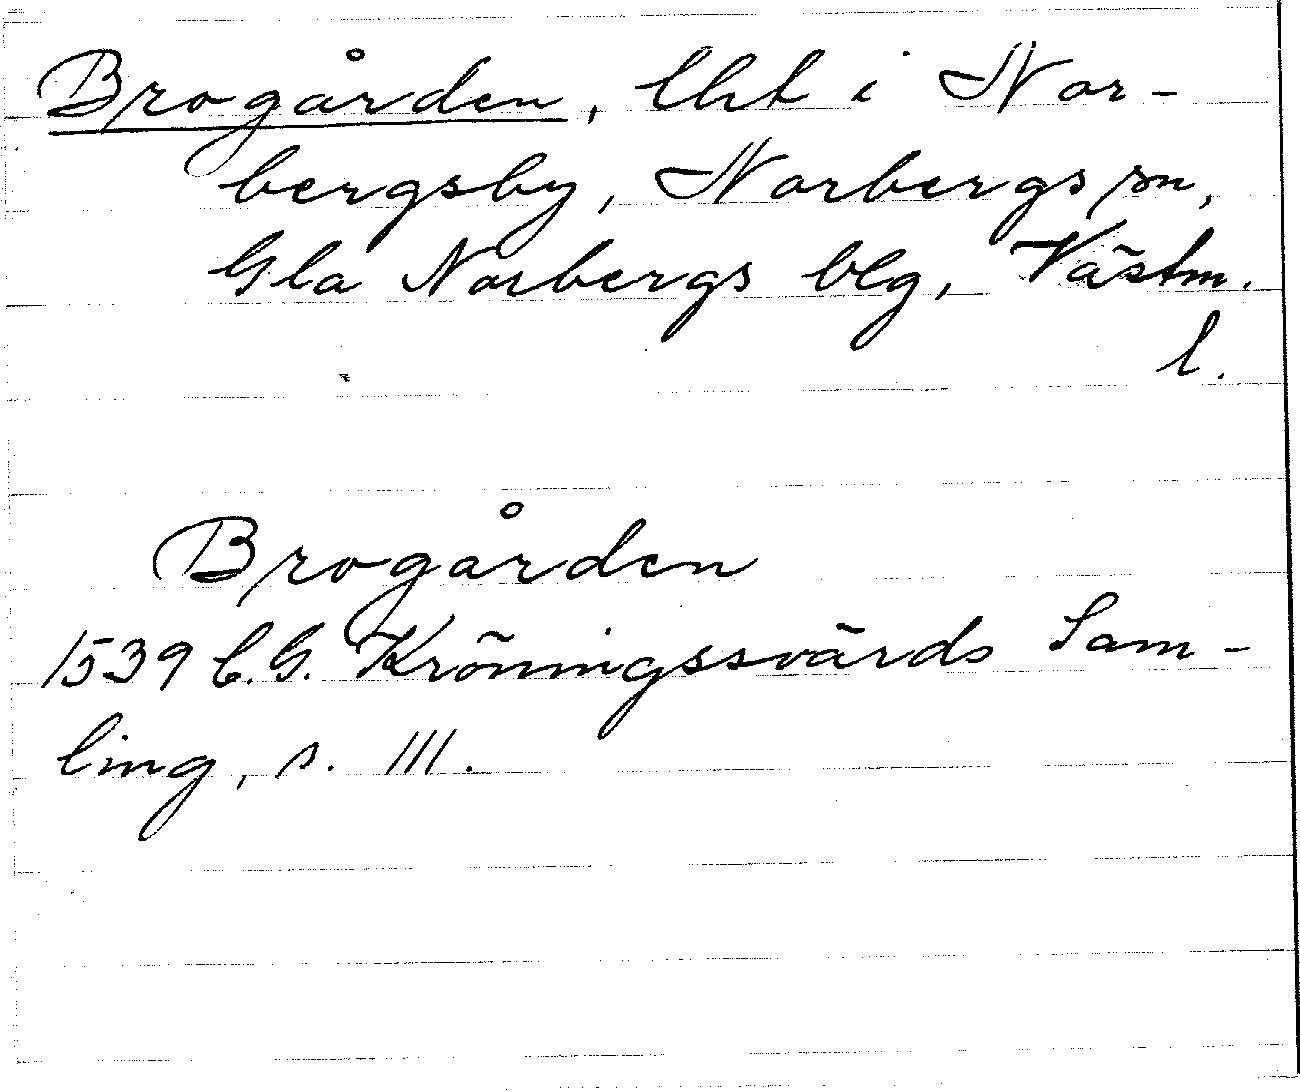 Brogården, lht i Nor-
bergsby, Norbergs sn,
Gla Norbergs blg, Västm.
l.
Brogården
1539 C.G. Kröningssvärds Sam-
ling, s. 111.